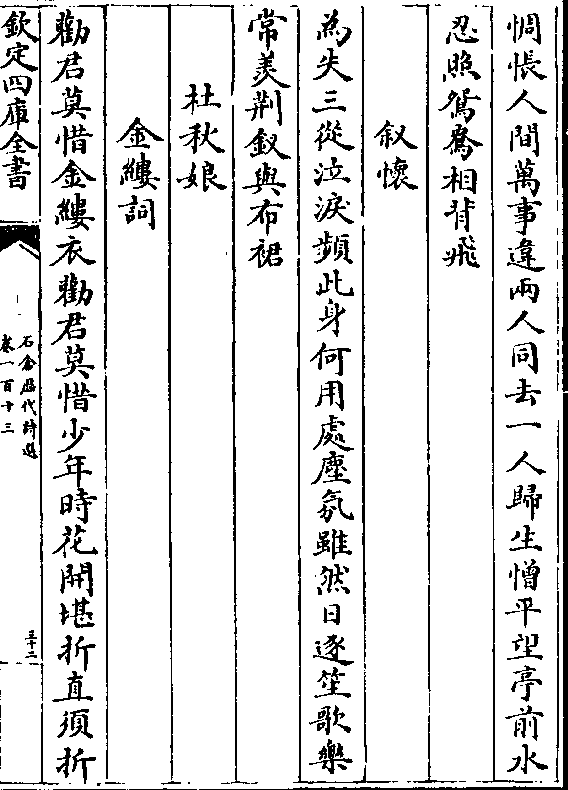 惆悵人間萬事違兩人同去一人歸生憎平望亭前水
忍照鴛鴦相背飛
叙懷
為失三從泣淚頻此身何用處塵氛雖然日逐笙歌樂
常羨荆釵與布裙
杜秋娘
金縷詞
勸君莫惜金縷衣勸君莫惜少年時花開堪折直須折
欽定四庫全書
石倉歴代詩選
卷一百十三
三十二